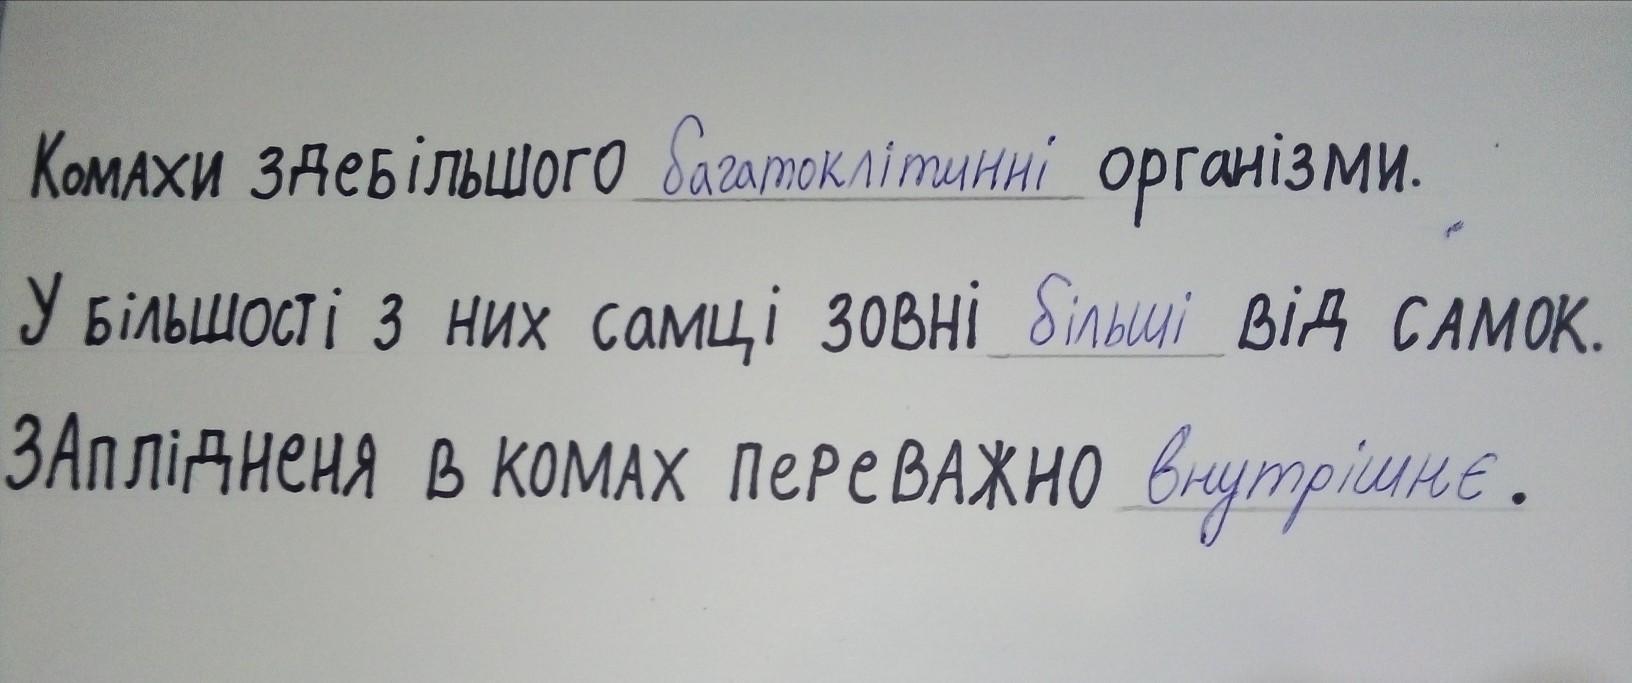 Комахи здебільшого багатоклітинні організми.
У більшості з них самці зовні більші від самок.
Запліdненя в комах переважно внутрішнє.